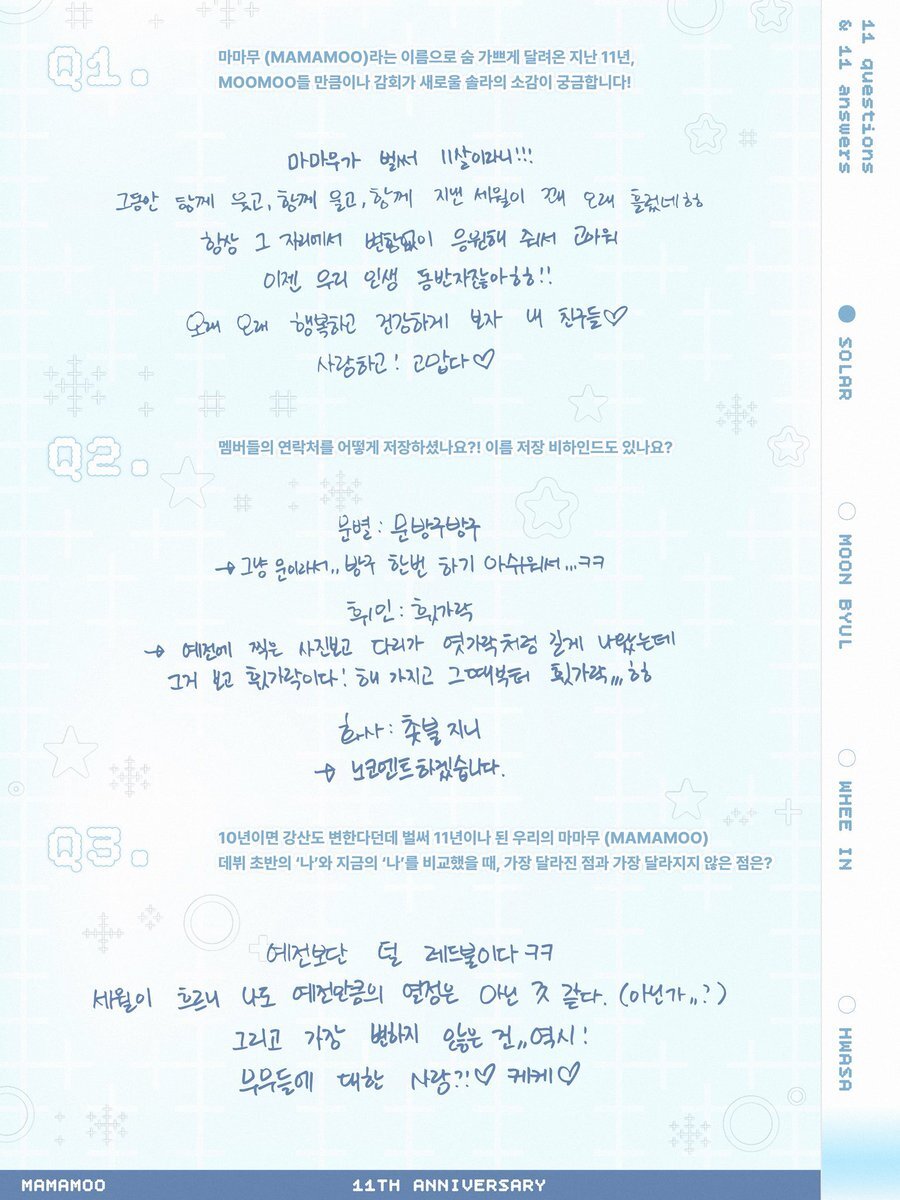 Q1.
마마무 (MAMAMOO)라는 이름으로 숨 가쁘게 달려온 지난 11년,
MOOMOO들 만큼이나 감회가 새로울 솔라의 소감이 궁금합니다!
마마무가 벌써 11살이라니!!!
그동안 함께 웃고, 함께 울고, 함께 지낸 세월이 꽤 오래 흘렀네ㅎㅎ
항상 그 자리에서 변함없이 응원해 줘서 고마워
이젠 우리 인생 동반자잖아ㅎㅎ!!
오래 오래 행복하고 건강하게 보자 내 친구들♡
사랑하고! 고맙다♡
Q2.
멤버들의 연락처를 어떻게 저장하셨나요?! 이름 저장 비하인드도 있나요?
문별 : 문방구방구
→ 그냥 문이라서,, 방구 한번 더 하기 아쉬워서,,,ㅋㅋ
휘인 : 휫가락
→ 예전에 찍은 사진보고 다리가 엿가락처럼 길게 나왔는데
그거 보고 휫가락이다! 해 가지고 그때부터 휫가락,,,ㅎㅎ
화사 : 촛불 지니
→ 노코멘트하겠습니다.
Q3.
10년이면 강산도 변한다던데 벌써 11년이나 된 우리의 마마무 (MAMAMOO)
데뷔 초반의 ‘나’와 지금의 ‘나’를 비교했을 때, 가장 달라진 점과 가장 달라지지 않은 점은?
예전보단 덜 레드불이다 ㅋㅋ
세월이 흐르니 나도 예전만큼의 열정은 아닌 것 같다. (아닌가,,?)
그리고 가장 변하지 않은 건,, 역시!
무무들에 대한 사랑?!♡ 케케♡
11 questions
& 11 answers
SOLAR
MOON BYUL
WHEE IN
HWASA
MAMAMOO
11TH ANNIVERSARY